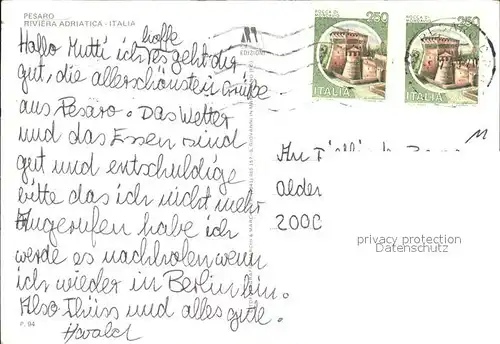 PESARO
RIVIERA ADRIATICA - ITALIA
Hallo Mutti ich hoffe es geht dir
gut, die allerschönsten Grüße
aus Pesaro. Das Wetter
und das Essen sind
gut und entschuldige
bitte das ich nicht mehr
Angerufen habe ich
werde es nachholen wenn
ich wieder in Berlin bin.
Also Tschüss und alles gute.
Harald
P. 94
EDIZIONI
250
ITALIA
250
ITALIA
An
alder
2000
privacy protection
Datenschutz